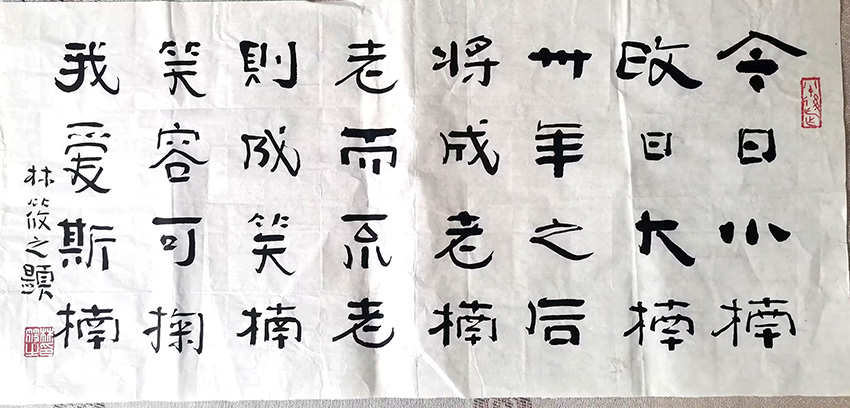 今日小楠
改日大楠
卅年之后
将成老楠
老而不老
則成笑楠
笑容可掬
我爱斯楠
林筱之題